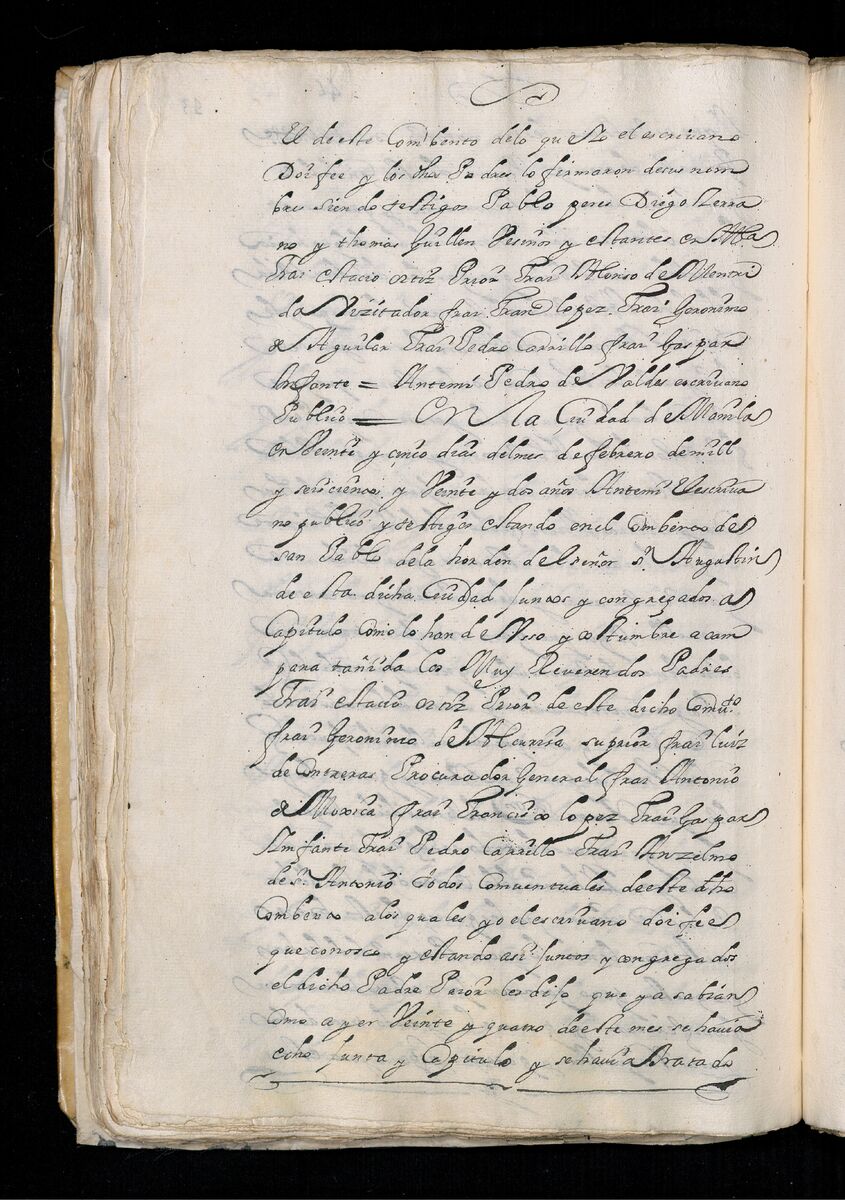 El de este Combento delo que yo el escrivano
Doi fee y los dhos Padres lo firmaron desus nom
bres siendo testigos Pablo peres Diego serra
no y thomas Guillen Vesinos y estantes en Mla
Frai estacio ortiz Prior Frai Alonso de Mentri
da Vizitador frai Franco lopez Frai Geronimo
de Aguilar Frai Pedro Carrillo frai Gaspar
Infante = Antemi Pedro de Valdes escrivano
Publico = En la Ciudad de Manila
en Veinte y cinco dias delmes de febrero demill
y seiscientos y Veinte y dos años Antemi el escriva
no publico y testigos estando en el Combento de
san Pablo dela horden del señor sn Augustin
de esta dicha Ciudad juntos y congregados a
Capitulo Como lo han de Vso y costumbre a cam
pana tañida los Muy Reverendos Padres
Frai estacio ortiz Prior de este dicho Comuto
frai Geronimo de suprior frai luiz
de Contreras Procurador General frai Antonio
de Moxica frai Francisco lopez Frai Gaspar
Imfante Frai Pedro Carrillo Frai Anzelmo
de sn Antonio todos Comventuales de este dho
Combento alos quales yo el escrivano doi fee
que conosco y estando asi juntos y congregados
el dicho Padre Prior les dijo que ya sabian
Como ayer Veinte y quatro de este mes se havia
echo Junta y Capitulo y se havia tratado